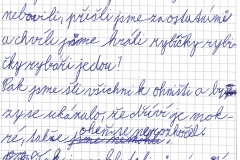 nebouřili, přišli jsme za ostatními
a chvíli jsme hráli rybičky rybič
ky rybáři jedou!
Pak jsme šli všichni k ohništi a by
zyse ukázalo, že dříví je mok-
ré, takže oheň se nerozhořel.